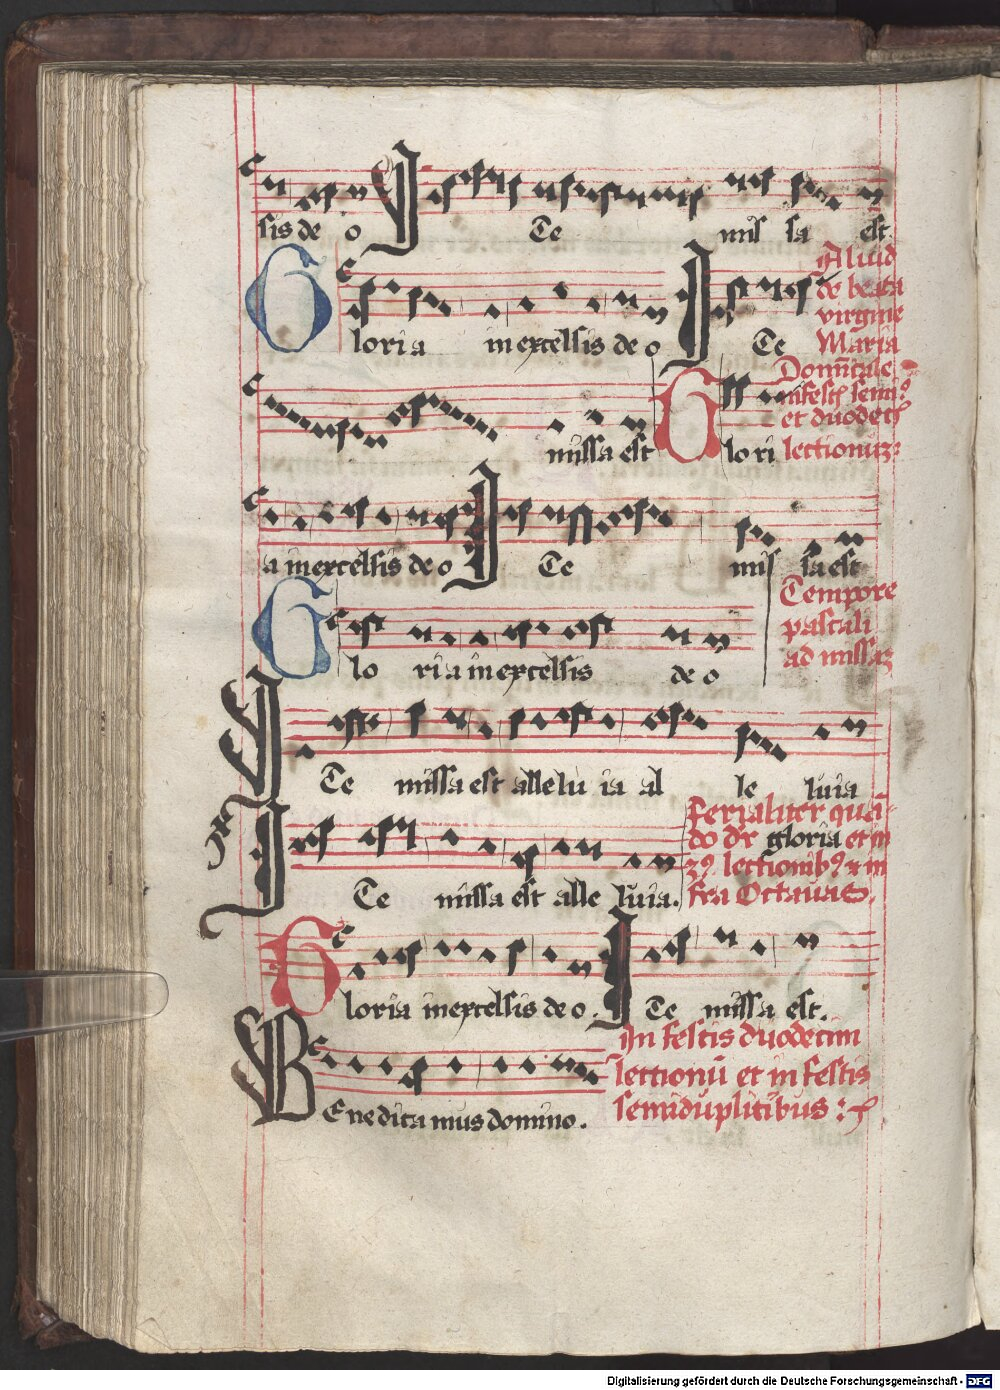 sis de o ITe mis sa est.
Aliud
de beata
virgine
Maria
Gloria in excelsis deo ITe
Dominicale
infest semi
et duodeci
lectionum:
missa est Glori
a in excelsis deo ITe mis sa est
Tempore
pascali
ad missaz
Glo ria in excelsis de o
ITe missa est allelu ia al le luia
Ferialiter quã
do dr gloria et in
lectionib et in
fra Octavas.
ITe missa est alle luia.
Gloria in excelsis deo. ITe missa est.
In festis duodecim
lectionũ et in festis
semiduplicibus :
BEnedicamus domino.
Digitalisierung gefördert durch die Deutsche Forschungsgemeinschaft - DFG